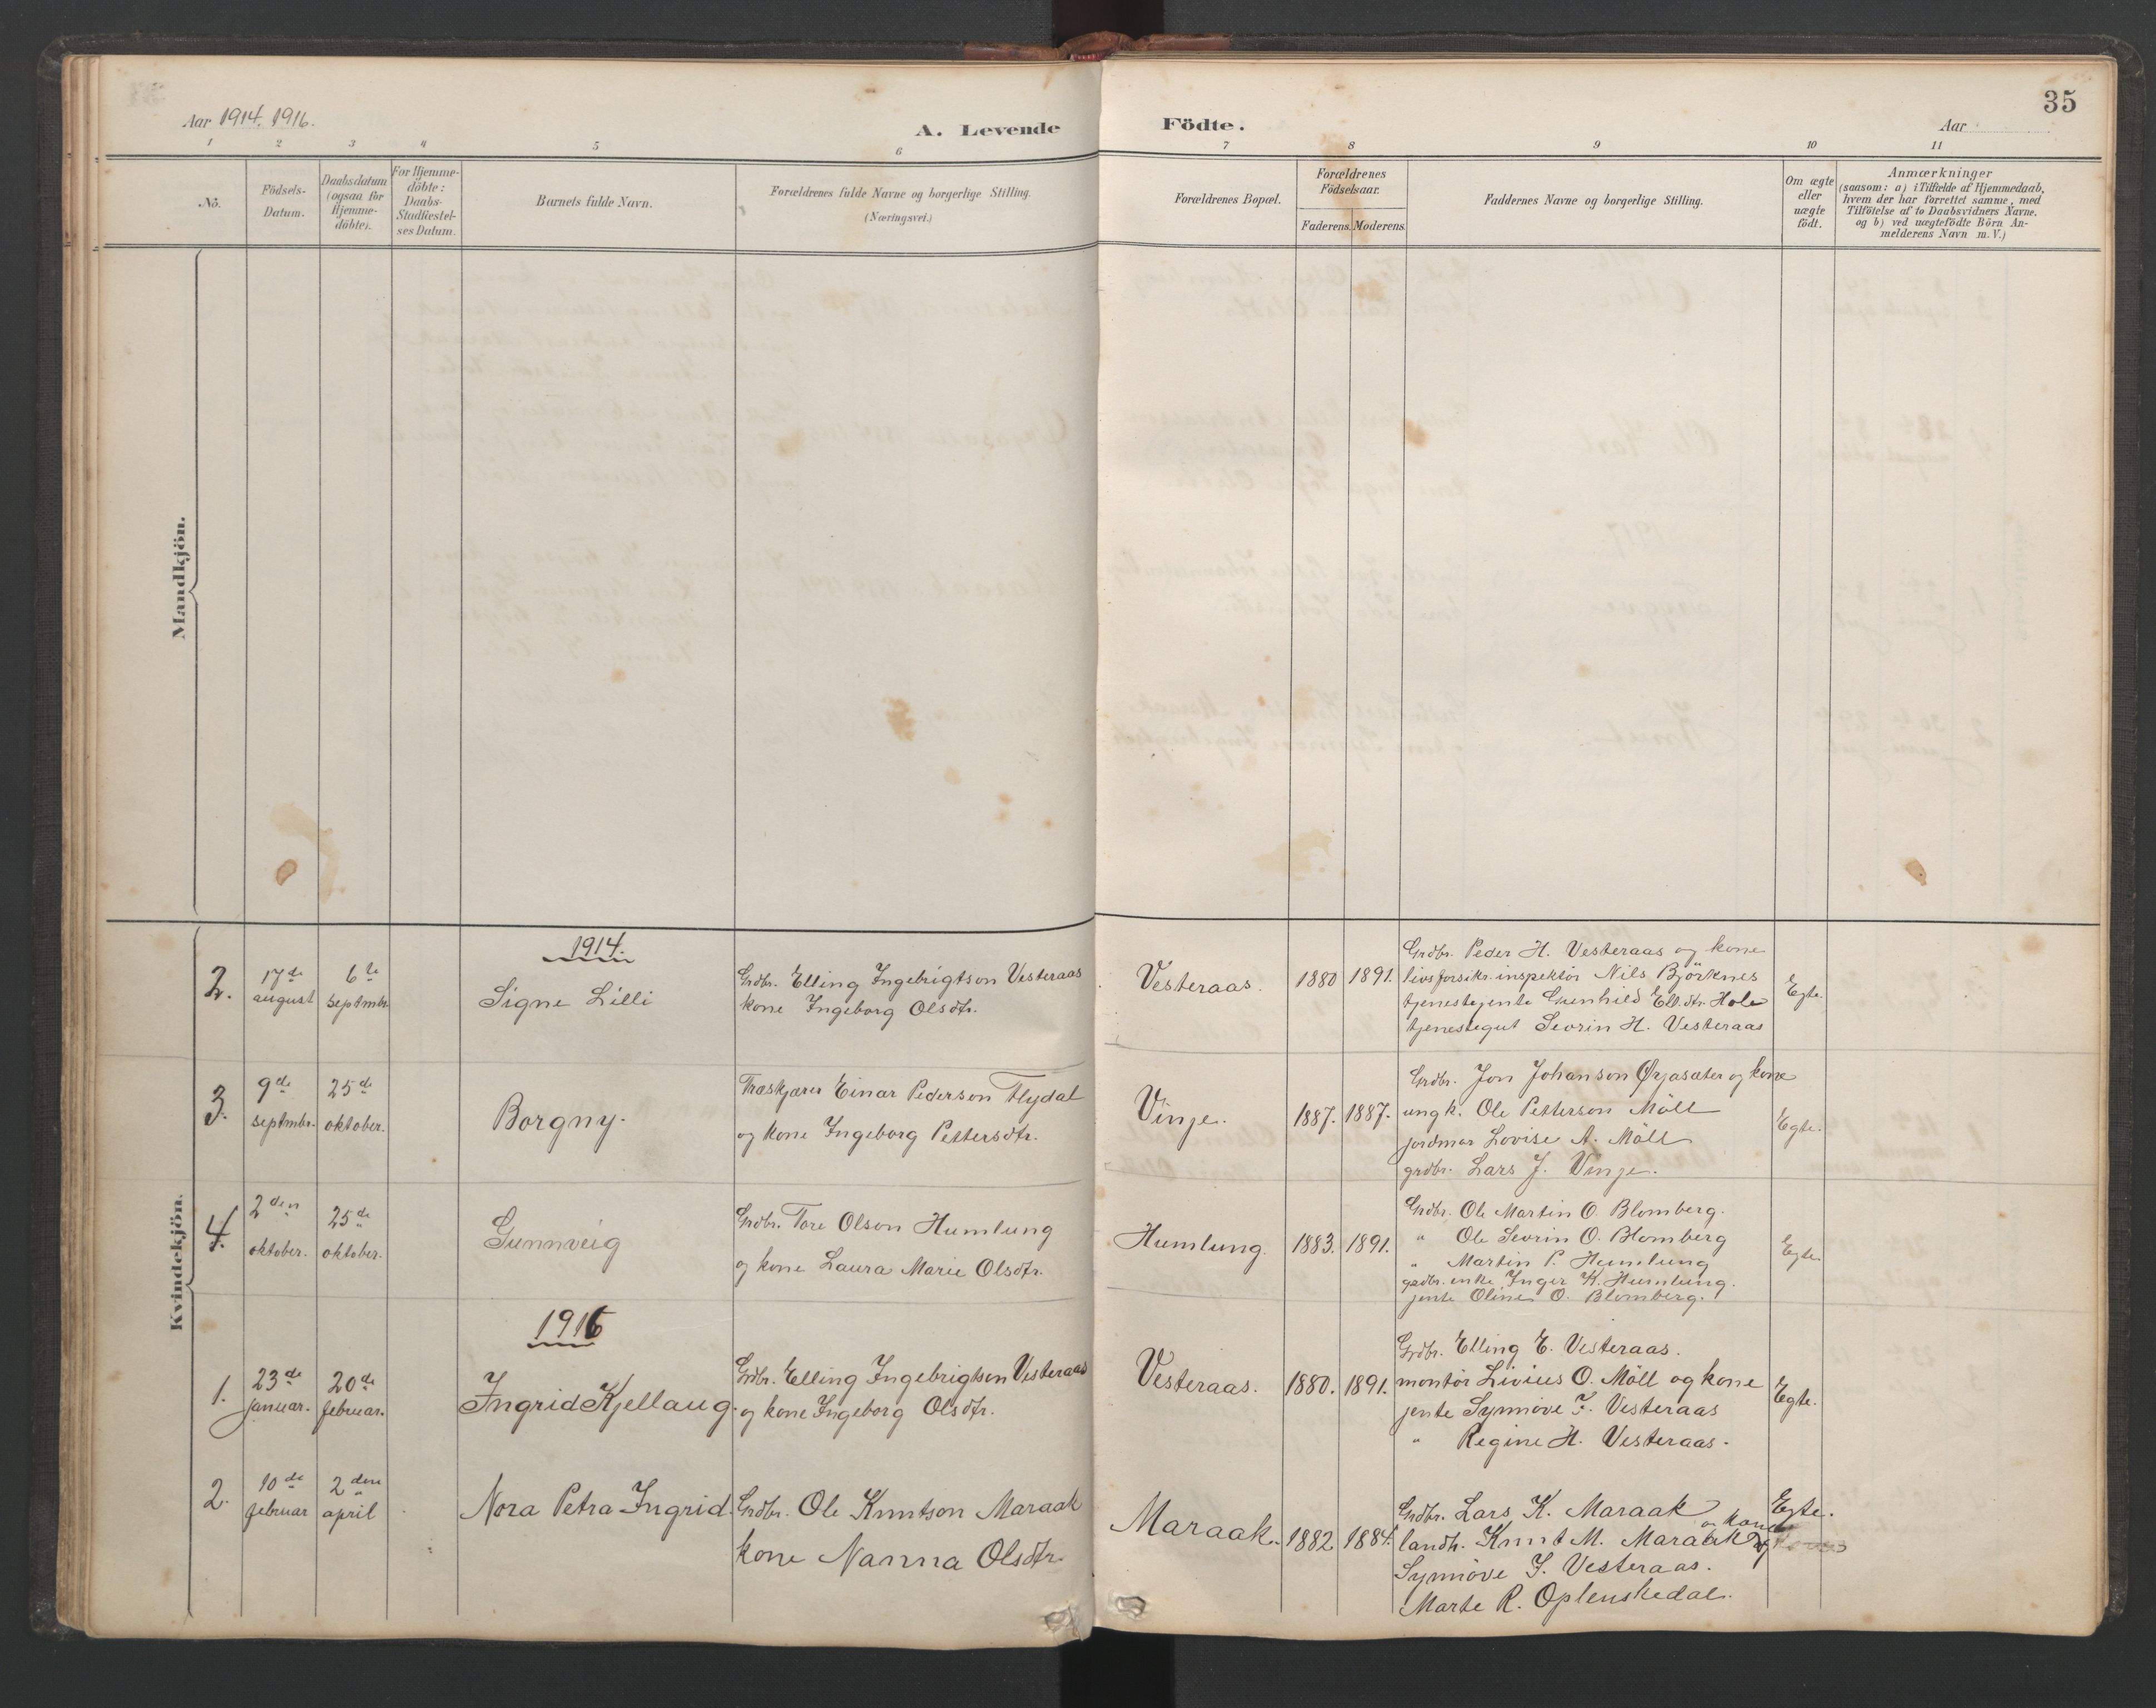 Aar 1914. 1916.
A. Levende Födte.
Aar
35
1 2 3 4 5 6 7 8 9 10 11
No.
Födsels-Datum.
Daabsdatum (ogsaa for Hjemme-döbte).
For Hjemme-döbte: Daabs-Stadfæstel-ses Datum.
Barnets fulde Navn.
Forældrenes fulde Navne og borgerlige Stilling. (Næringsvei.)
Forældrenes Bopæl.
Forældrenes Födselsaar.
Faderens. Moderens.
Faddernes Navne og borgerlige Stilling.
Om ægte eller uægte födt.
Anmærkninger
(saasom: a) i Tilfælde af Hjemmedaab,
hvem der har forrettet samme, med
Tilföielse af to Daabsvidners Navne.
og b) ved uægtefödte Börn An-
melderens Navn m. V.)
Mandkjön.
Kvindekjön.
1914.
2. 17de august 6te septmbr. Signe Lilli
Grdbr. Elling Ingebrigtson Vesteraas
kone Ingeborg Olsdtr.
Vesteraas. 1880 1891.
Grdbr. Peder H. Vesteraas og kone
livsforsikr. inspektör Nils Björknes
tjenestejente Gunhild Ell.dtr. Hole
tjenestegut Sevrin H. Vesteraas
Egte.
3. 9de septmbr. 25de oktober. Borgny.
Træskjærer Einar Pederson Flydal
og kone Ingeborg Pettersdtr.
Vinje. 1887. 1887.
Grdbr. Jon Johanson Ørjasæter og kone
ungk. Ole Petterson Möll
jordmor Lovise A. Möll
grdbr. Lars J. Vinje.
Egte.
4. 2den oktober. 25de oktober. Gunnveig
Grdbr. Tore Olson Humlung
og kone Laura Marie Olsdtr.
Humlung. 1883. 1891.
Grdbr. Ole Martin O. Blomberg.
" Ole Sevrin O. Blomberg
" Martin P. Humlung
gardbr. enke Inger K. Humlung.
jente Oline O. Blomberg.
Egte.
1916
1. 23de januar. 20de februar. Ingrid Kjellaug.
Grdbr. Elling Ingebrigtson Vesteraas
og kone Ingeborg Olsdtr.
Vesteraas. 1880. 1891.
Grdbr. Elling E. Vesteraas.
montör Livius O. Möll og kone
jente Synnöve I. Vesteraas
" Regine H. Vesteraas.
Egte.
2. 10de februar 2den april Nora Petra Ingrid.
Grdbr. Ole Knutson Maraak
kone Nanna Olsdtr.
Maraak. 1882 1884.
Grdbr. Lars K. Maraak og kone
landh. Knut M. Maraak og
Synnöve I. Vesteraas.
Marte R. Oplenskedal.
Egte.